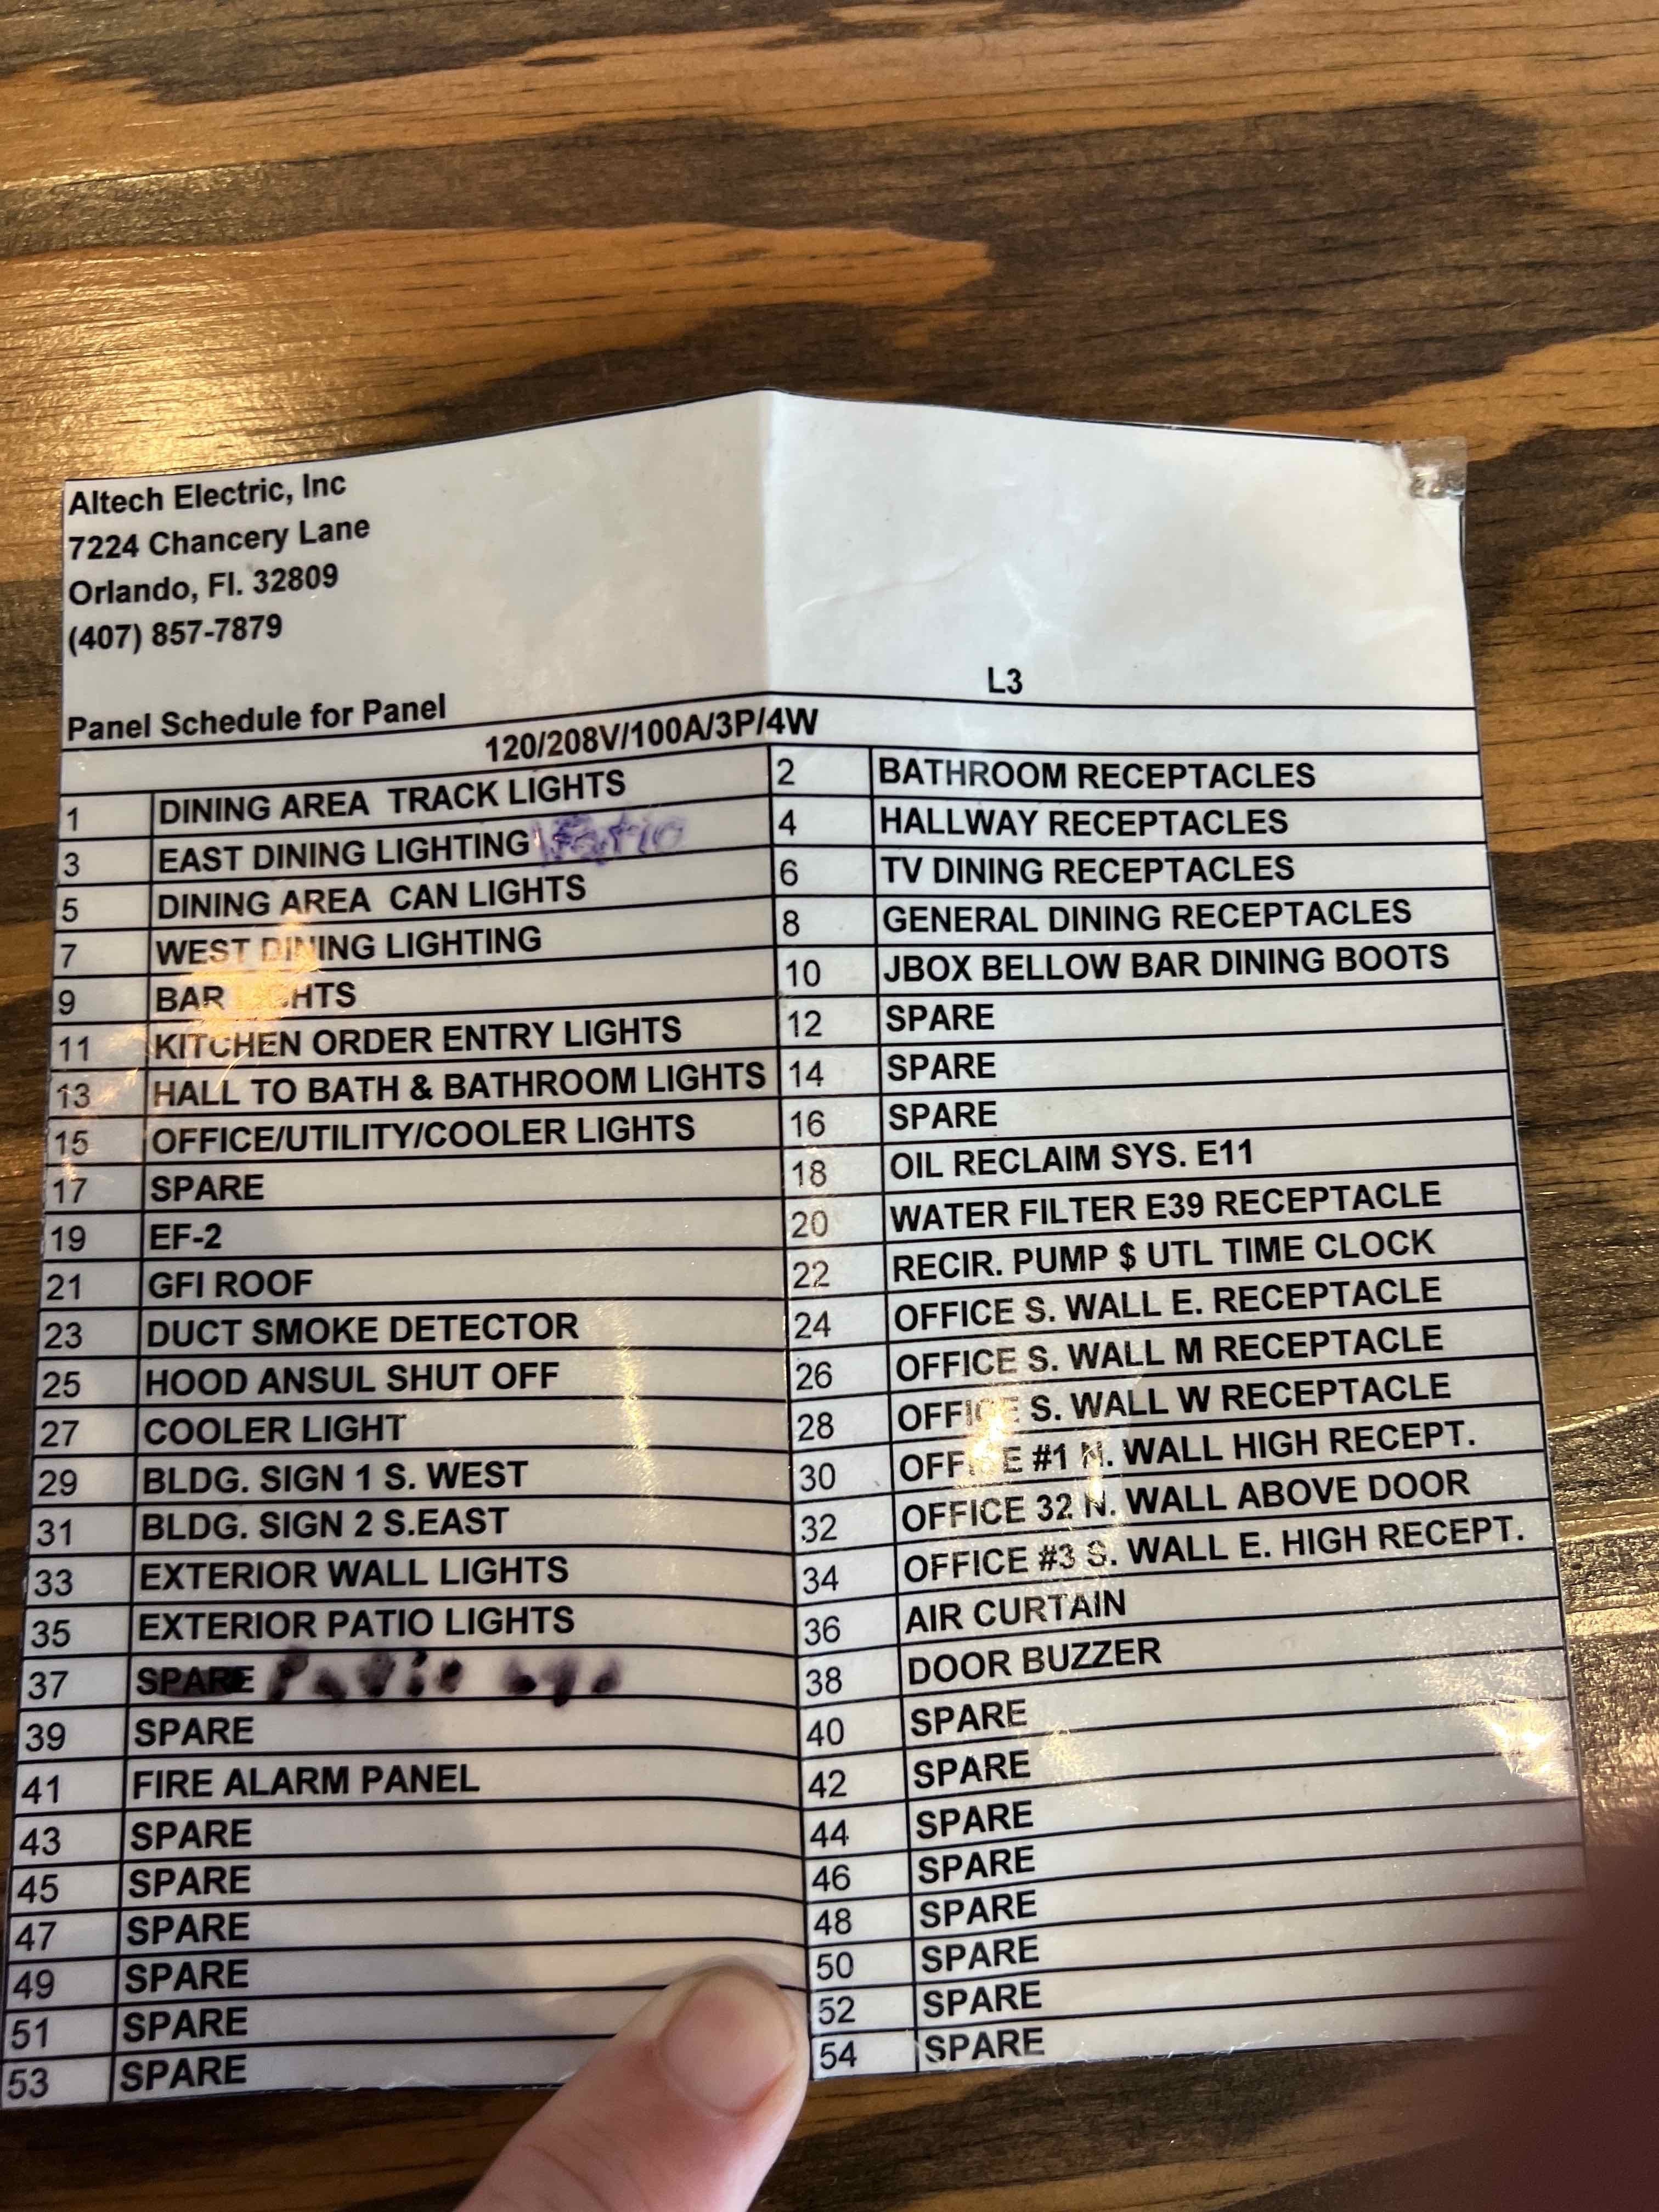 Altech Electric, Inc
7224 Chancery Lane
Orlando, Fl. 32809
(407) 857-7879
Panel Schedule for Panel L3
120/208V/100A/3P/4W
1 DINING AREA TRACK LIGHTS 2 BATHROOM RECEPTACLES
3 EAST DINING LIGHTING Patio 4 HALLWAY RECEPTACLES
5 DINING AREA CAN LIGHTS 6 TV DINING RECEPTACLES
7 WEST DINING LIGHTING 8 GENERAL DINING RECEPTACLES
9 BAR LIGHTS 10 JBOX BELLOW BAR DINING BOOTS
11 KITCHEN ORDER ENTRY LIGHTS 12 SPARE
13 HALL TO BATH & BATHROOM LIGHTS 14 SPARE
15 OFFICE/UTILITY/COOLER LIGHTS 16 SPARE
17 SPARE 18 OIL RECLAIM SYS. E11
19 EF-2 20 WATER FILTER E39 RECEPTACLE
21 GFI ROOF 22 RECIR. PUMP $ UTL TIME CLOCK
23 DUCT SMOKE DETECTOR 24 OFFICE S. WALL E. RECEPTACLE
25 HOOD ANSUL SHUT OFF 26 OFFICE S. WALL M RECEPTACLE
27 COOLER LIGHT 28 OFFICE S. WALL W RECEPTACLE
29 BLDG. SIGN 1 S. WEST 30 OFFICE #1 N. WALL HIGH RECEPT.
31 BLDG. SIGN 2 S.EAST 32 OFFICE 32 N. WALL ABOVE DOOR
33 EXTERIOR WALL LIGHTS 34 OFFICE #3 S. WALL E. HIGH RECEPT.
35 EXTERIOR PATIO LIGHTS 36 AIR CURTAIN
37 SPARE Patio 38 DOOR BUZZER
39 SPARE 40 SPARE
41 FIRE ALARM PANEL 42 SPARE
43 SPARE 44 SPARE
45 SPARE 46 SPARE
47 SPARE 48 SPARE
49 SPARE 50 SPARE
51 SPARE 52 SPARE
53 SPARE 54 SPARE